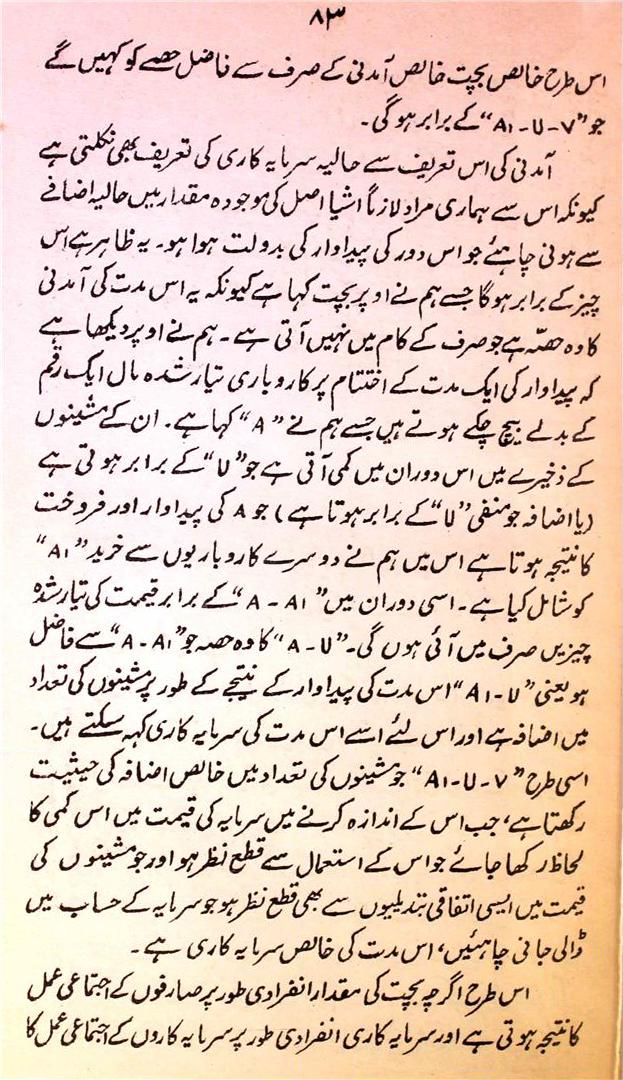 ۸۳
اس طرح خالص بچت خالص آمدنی کے صرف سے فاضل حصے کو کہیں گے
جو "A۱ - U - V" کے برابر ہو گی۔
آمدنی کی اس تعریف سے حالیہ سرمایہ کاری کی تعریف بھی نکلتی ہے
کیونکہ اس سے ہماری مراد لازماً اشیا اصل کی موجودہ مقدار میں حالیہ اضافے
سے ہونی چاہئے جو اس دور کی پیداوار کی بدولت ہوا ہو۔ یہ ظاہر ہے اس
چیز کے برابر ہو گا جسے ہم نے اوپر بچت کہا ہے کیونکہ یہ اس مدت کی آمدنی
کا وہ حصّہ ہے جو صرف کے کام میں نہیں آتی ہے۔ ہم نے اوپر دیکھا ہے
کہ پیداوار کی ایک مدت کے اختتام پر کاروباری تیار شدہ مال ایک رقم
کے بدلے بیچ چکے ہوتے ہیں جسے ہم نے "A" کہا ہے۔ ان کے مشینوں
کے ذخیرے میں اس دوران میں کمی آتی ہے جو "U" کے برابر ہوتی ہے
(یا اضافہ جو منفی "U" کے برابر ہوتا ہے) جو A کی پیداوار اور فروخت
کا نتیجہ ہوتا ہے اس میں ہم نے دوسرے کاروباریوں سے خرید "A۱"
کو شامل کیا ہے۔ اسی دوران میں "A - A۱" کے برابر قیمت کی تیار شدہ
چیزیں صرف میں آئی ہوں گی۔ "A - U" کا وہ حصہ جو "A - A۱" سے فاضل
ہو یعنی "A۱ - U" اس مدت کی پیداوار کے نتیجے کے طور پر مشینوں کی تعداد
میں اضافہ ہے اور اس لئے اسے اس مدت کی سرمایہ کاری کہہ سکتے ہیں۔
اسی طرح "A۱ - U - V" جو مشینوں کی تعداد میں خالص اضافہ کی حیثیت
رکھتا ہے، جب اس کے اندازہ کرنے میں سرمایہ کی قیمت میں اس کمی کا
لحاظ رکھا جائے جو اس کے استعمال سے قطع نظر ہو اور جو مشینوں کی
قیمت میں ایسی اتفاقی تبدیلیوں سے بھی قطع نظر ہو جو سرمایہ کے حساب میں
ڈالی جانی چاہئیں، اس مدت کی خالص سرمایہ کاری ہے۔
اس طرح اگرچہ بچت کی مقدار انفرادی طور پر صارفوں کے اجتماعی عمل
کا نتیجہ ہوتی ہے اور سرمایہ کاری انفرادی طور پر سرمایہ کاروں کے اجتماعی عمل کا